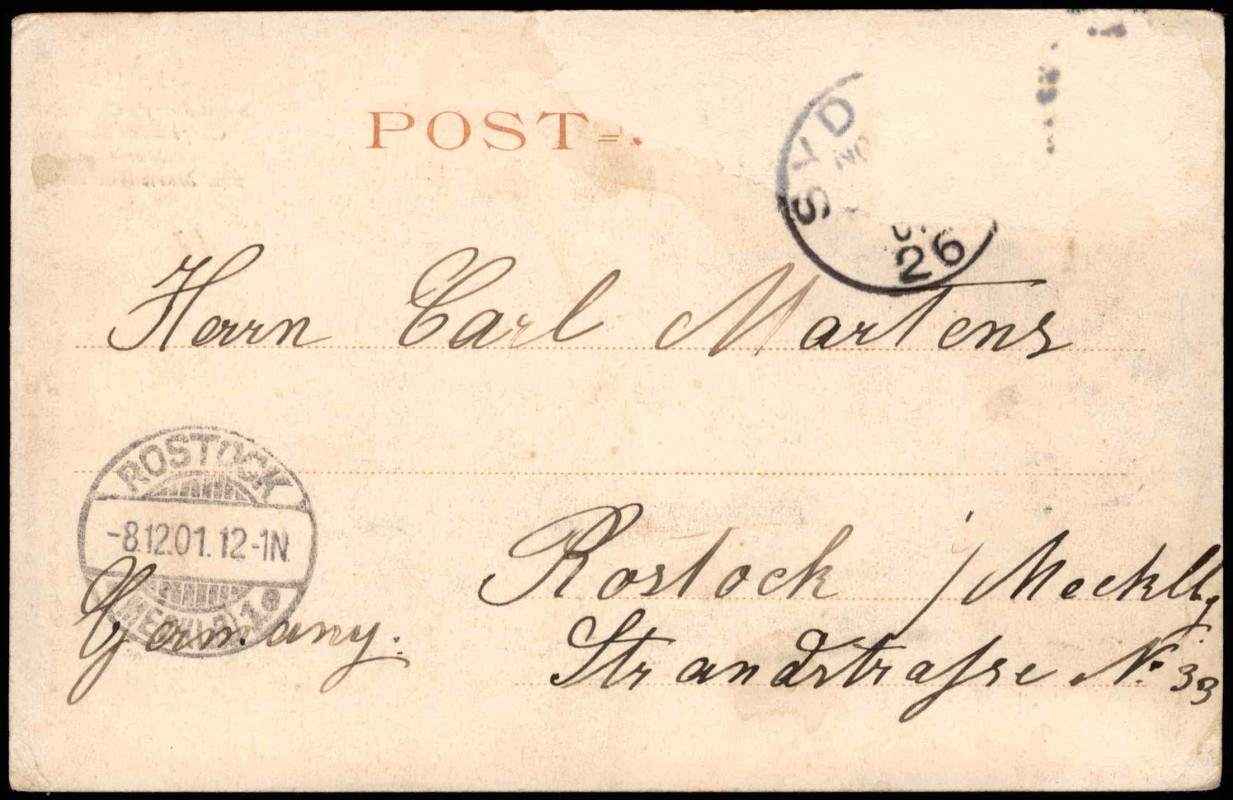 POST
SYD
NO
26
Herrn Carl Martens
ROSTOCK
-8.12.01.12-1N
Rostock j/ Mecklbg
Germany.
Strandstraſse No 33